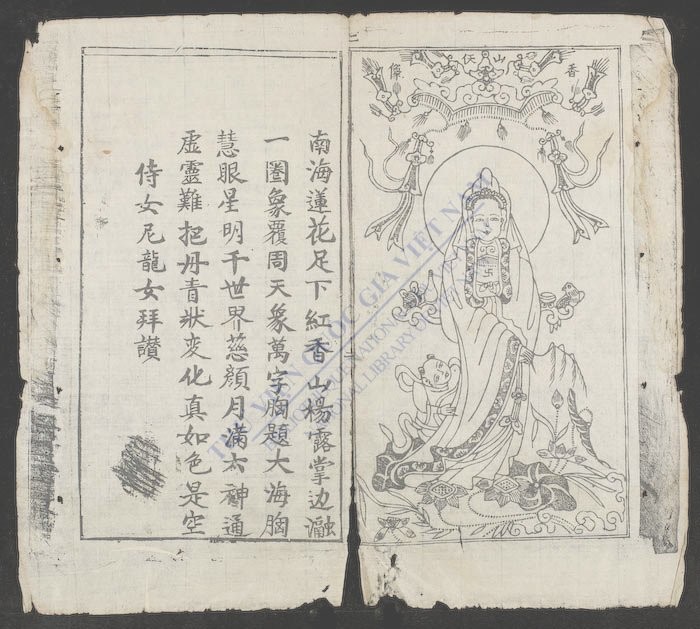 香山仸像
卍
南海蓮花足下紅香山楊露掌边瀜
一圈象覆周天象萬字胸題大海胸
慧眼星明千世界慈顔月滿六神通
虛靈難把丹青狀変化真如色是空
侍女尼龍女拜讃
THƯ VIỆN QUỐC GIA VIỆT NAM
NATIONAL LIBRARY OF VIETNAM